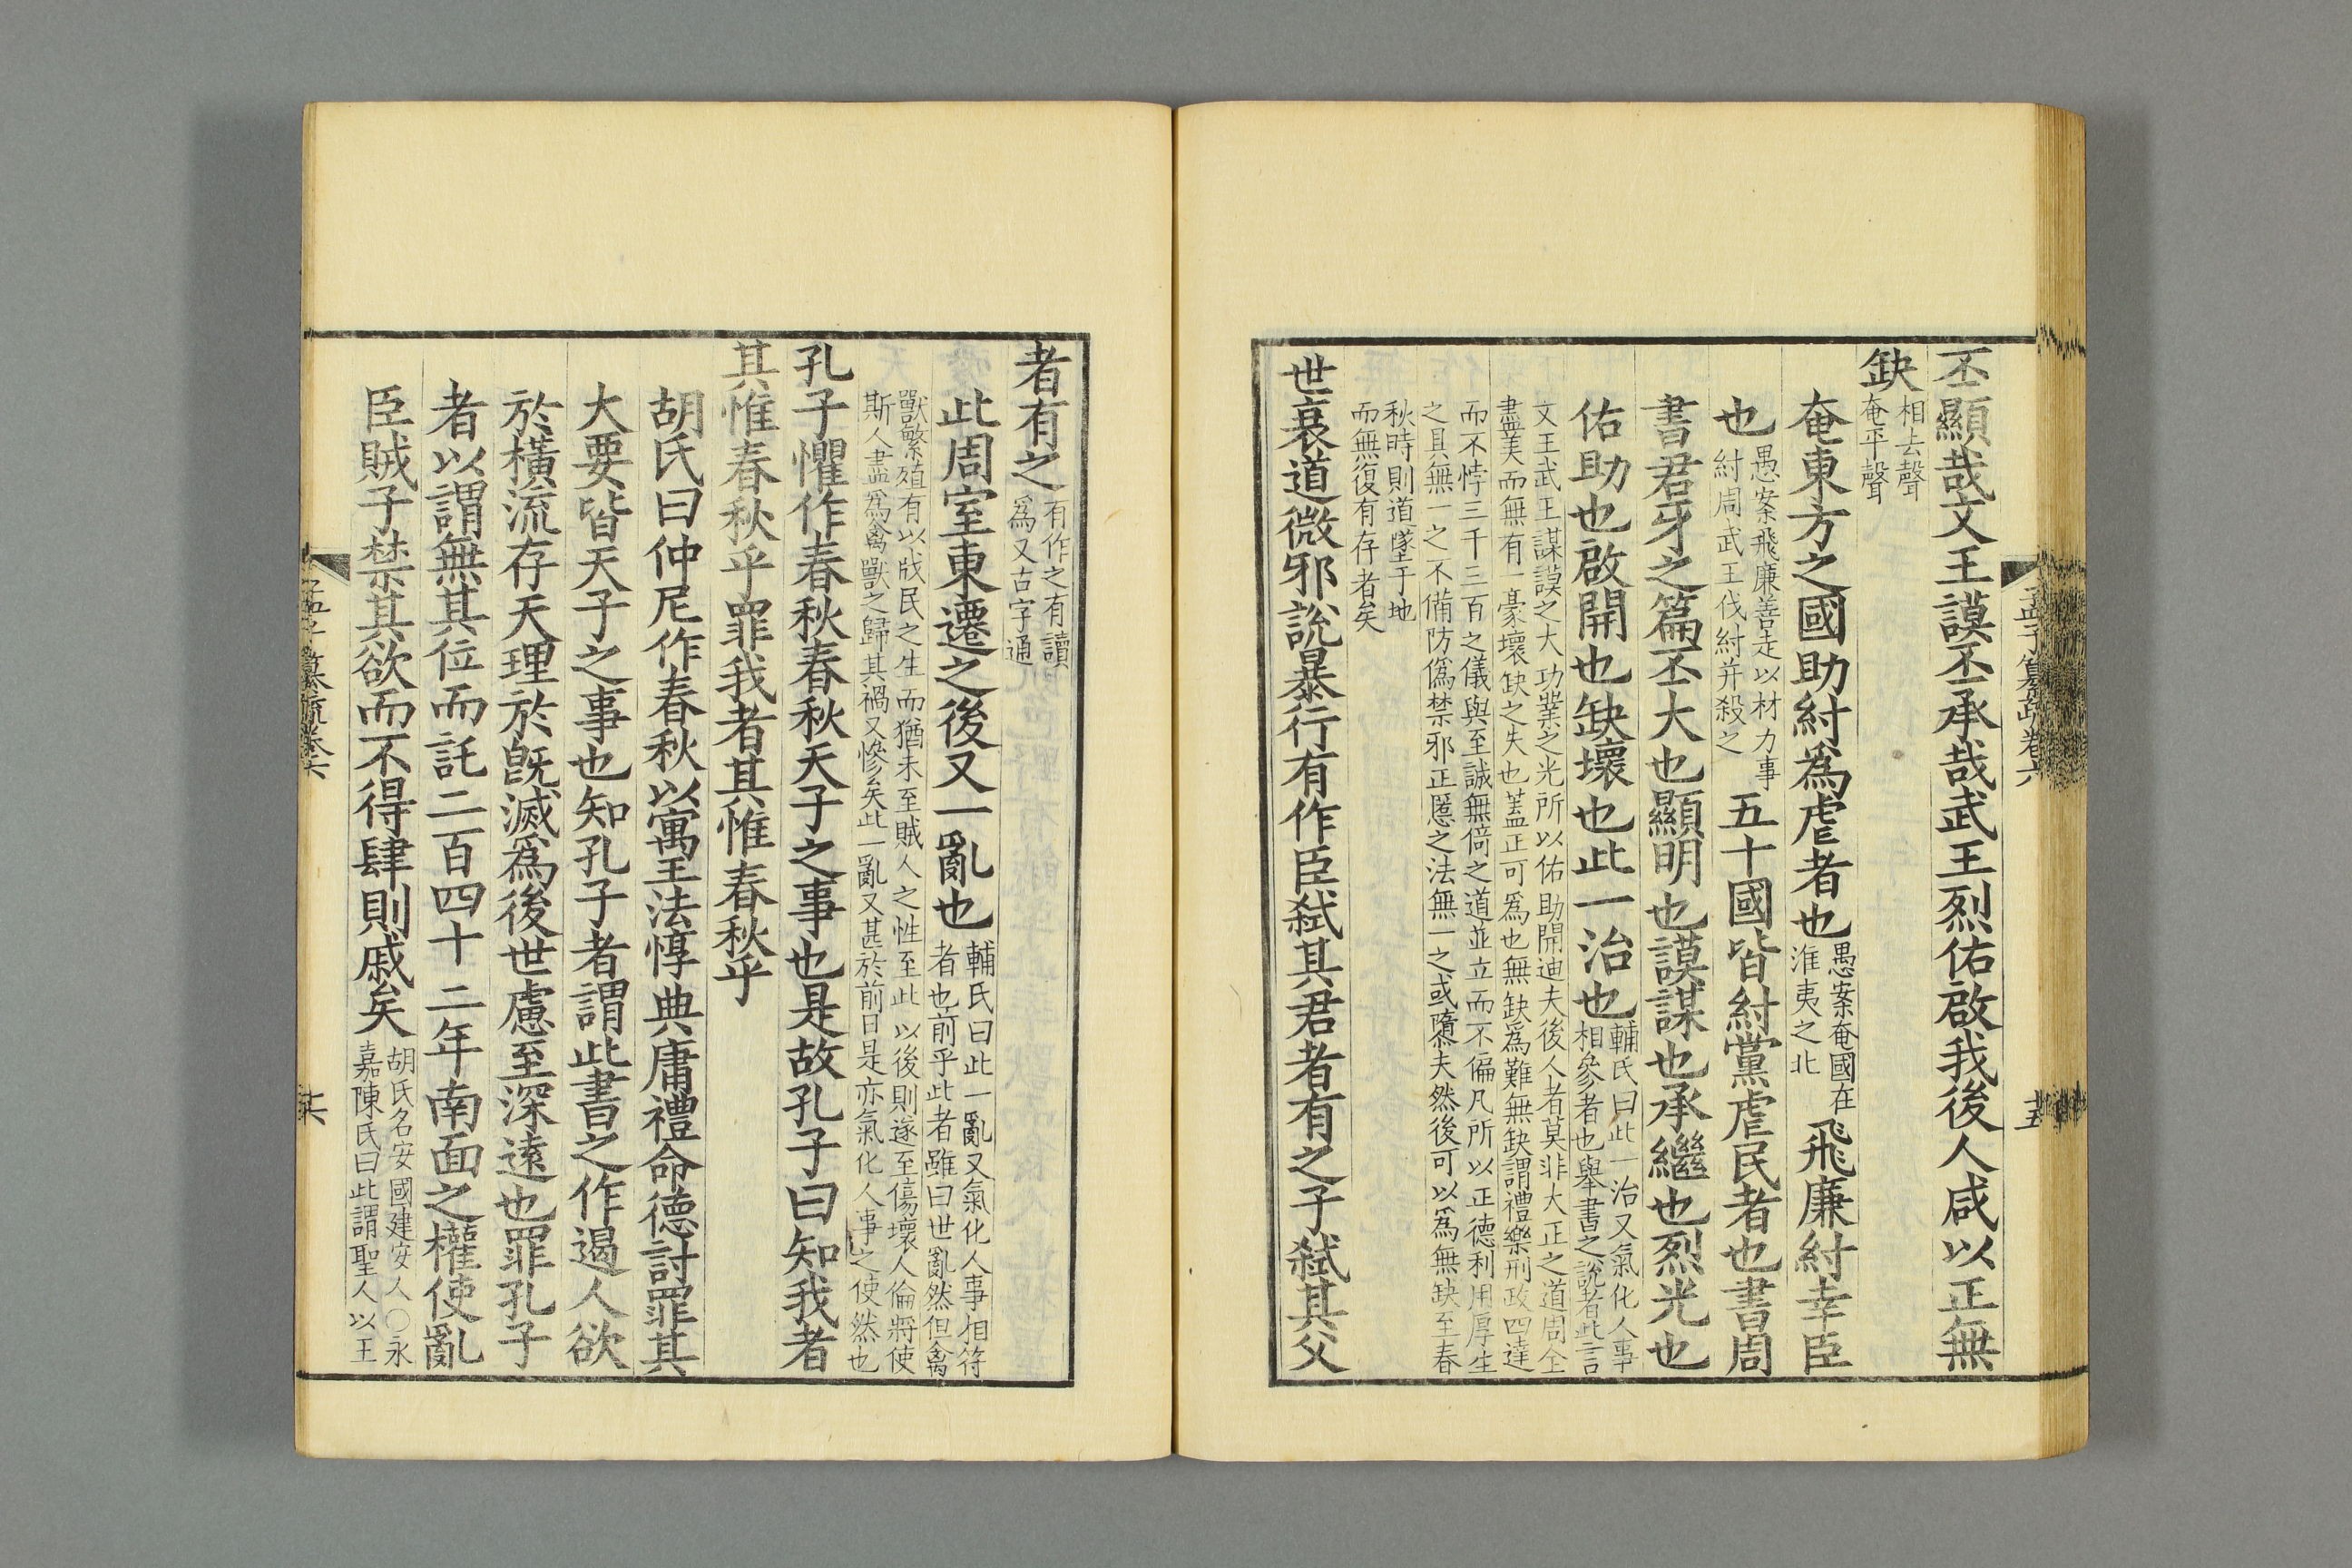 丕顯哉文王謨丕承哉武王烈佑啟我後人咸以正無
缺
相去聲
奄平聲
奄東方之國助紂爲虐者也
愚案奄國在
淮夷之北
飛廉紂幸臣
也
愚案飛廉善走以材力事
紂周武王伐紂并殺之
五十國皆紂黨虐民者也書周
書君牙之篇丕大也顯明也謨謀也承繼也烈光也
佑助也啟開也缺壞也此一治也
輔氏曰此一治又氣化人事
相參者也舉書之說者此言
文王武王謀謨之大功業之光所以佑助開迪夫後人者莫非大正之道周全
盡美而無有一豪壞缺之失也蓋正可爲也無缺爲難無缺謂禮樂刑政四達
而不悖三千三百之儀與至誠無倚之道並立而不偏凡所以正德利用厚生
之具無一之不備防僞禁邪正慝之法無一之或隳夫然後可以爲無缺至春
秋時則道墜于地
而無復有存者矣
世衰道微邪說暴行有作臣弑其君者有之子弑其父
孟子纂疏卷六
十五
者有之
有作之有讀
爲又古字通
此周室東遷之後又一亂也
輔氏曰此一亂又氣化人事相符
者也前乎此者雖曰世亂然但禽
獸繁殖有以戕民之生而猶未至賊人之性至此以後則遂至傷壞人倫將使
斯人盡爲禽獸之歸其禍又慘矣此一亂又甚於前日是亦氣化人事之使然也
孔子懼作春秋春秋天子之事也是故孔子曰知我者
其惟春秋乎罪我者其惟春秋乎
胡氏曰仲尼作春秋以寓王法惇典庸禮命德討罪其
大要皆天子之事也知孔子者謂此書之作遏人欲
於橫流存天理於旣滅爲後世慮至深遠也罪孔子
者以謂無其位而託二百四十二年南面之權使亂
臣賊子禁其欲而不得肆則戚矣
胡氏名安國建安人○永
嘉陳氏曰此謂聖人以王
孟子纂疏卷六
十六